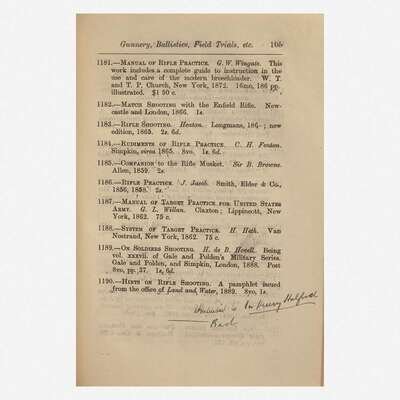 Gunnery, Ballistics, Field Trials, etc. 105
1181.—MANUAL OF RIFLE PRACTICE. G. W. Wingate. This
work includes a complete guide to instruction in the
use and care of the modern breechloader. W. T.
and T. P. Church, New York, 1872. 16mo, 186 pp.
illustrated. $1 50 c.
1182.—MATCH SHOOTING with the Enfield Rifle. New-
castle and London, 1866. 1s.
1183.—RIFLE SHOOTING. Heaton. Longmans, 186-; new
edition, 1865. 2s. 6d.
1184.—RUDIMENTS OF RIFLE PRACTICE. C. H. Fenton.
Simpkin, circa 1865. 8vo. 1s. 6d.
1185.—COMPANION to the Rifle Musket. Sir B. Browne.
Allen, 1859. 2s.
1186.—RIFLE PRACTICE. J. Jacob. Smith, Elder & Co.,
1856, 1858. 2s.
1187.—MANUAL OF TARGET PRACTICE FOR UNITED STATES
ARMY. G. L. Willan. Claxton; Lippincott, New
York, 1862. 75 c.
1188.—SYSTEM OF TARGET PRACTICE. H. Heth. Van
Nostrand, New York, 1862. 75 c.
1189.—ON SOLDIERS SHOOTING. H. de B. Hovell. Being
vol. xxxvii. of Gale and Polden's Military Series.
Gale and Polden, and Simpkin, London, 1888. Post
8vo, pp. 37. 1s. 6d.
1190.—HINTS ON RIFLE SHOOTING. A pamphlet issued
from the office of Land and Water, 1889. 8vo, 1s.
Sir Henry Halford
Bart